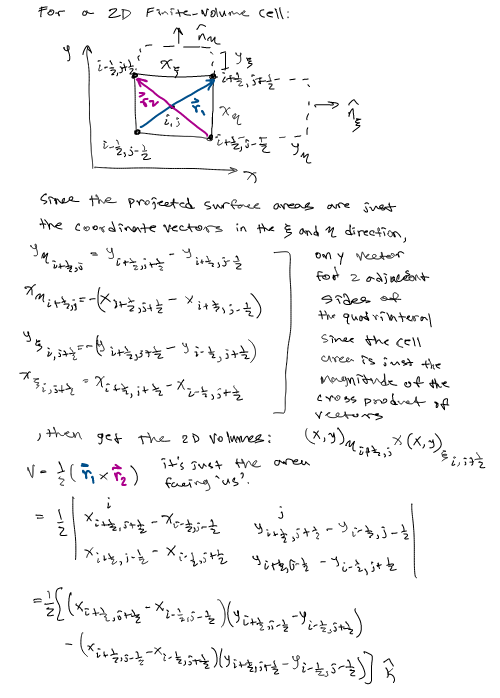 For a 2D Finite-Volume Cell:
n̂_η
y
i-½,j+½
x_ξ
y_ξ
i+½,j+½
r⃗2
r⃗1
x_η
i,j
n̂_ξ
i-½,j-½
i+½,j-½
y_η
x
Since the projected surface areas are just
the coordinate vectors in the ξ and η direction,
y_η i+½,j = y i+½,j+½ - y i+½,j-½
x_η i+½,j = -(x i+½,j+½ - x i+½,j-½)
y_ξ i,j+½ = -(y i+½,j+½ - y i-½,j+½)
x_ξ i,j+½ = x i+½,j+½ - x i-½,j+½
only vector
for 2 adjacent
sides of
the quadrilateral
since the cell
area is just the
magnitude of the
cross product of
vectors
(x,y)_η i+½,j × (x,y)_ξ i,j+½
, then get the 2D volumes:
V = ½ (r⃗1 × r⃗2) it's just the area
facing 'us'.
i j
= ½ | x i+½,j+½ - x i-½,j-½ y i+½,j+½ - y i-½,j-½ |
| x i+½,j-½ - x i-½,j+½ y i+½,j-½ - y i-½,j+½ |
= ½ [(x i+½,j+½ - x i-½,j-½)(y i+½,j-½ - y i-½,j+½)
- (x i+½,j-½ - x i-½,j+½)(y i+½,j+½ - y i-½,j-½)] k̂